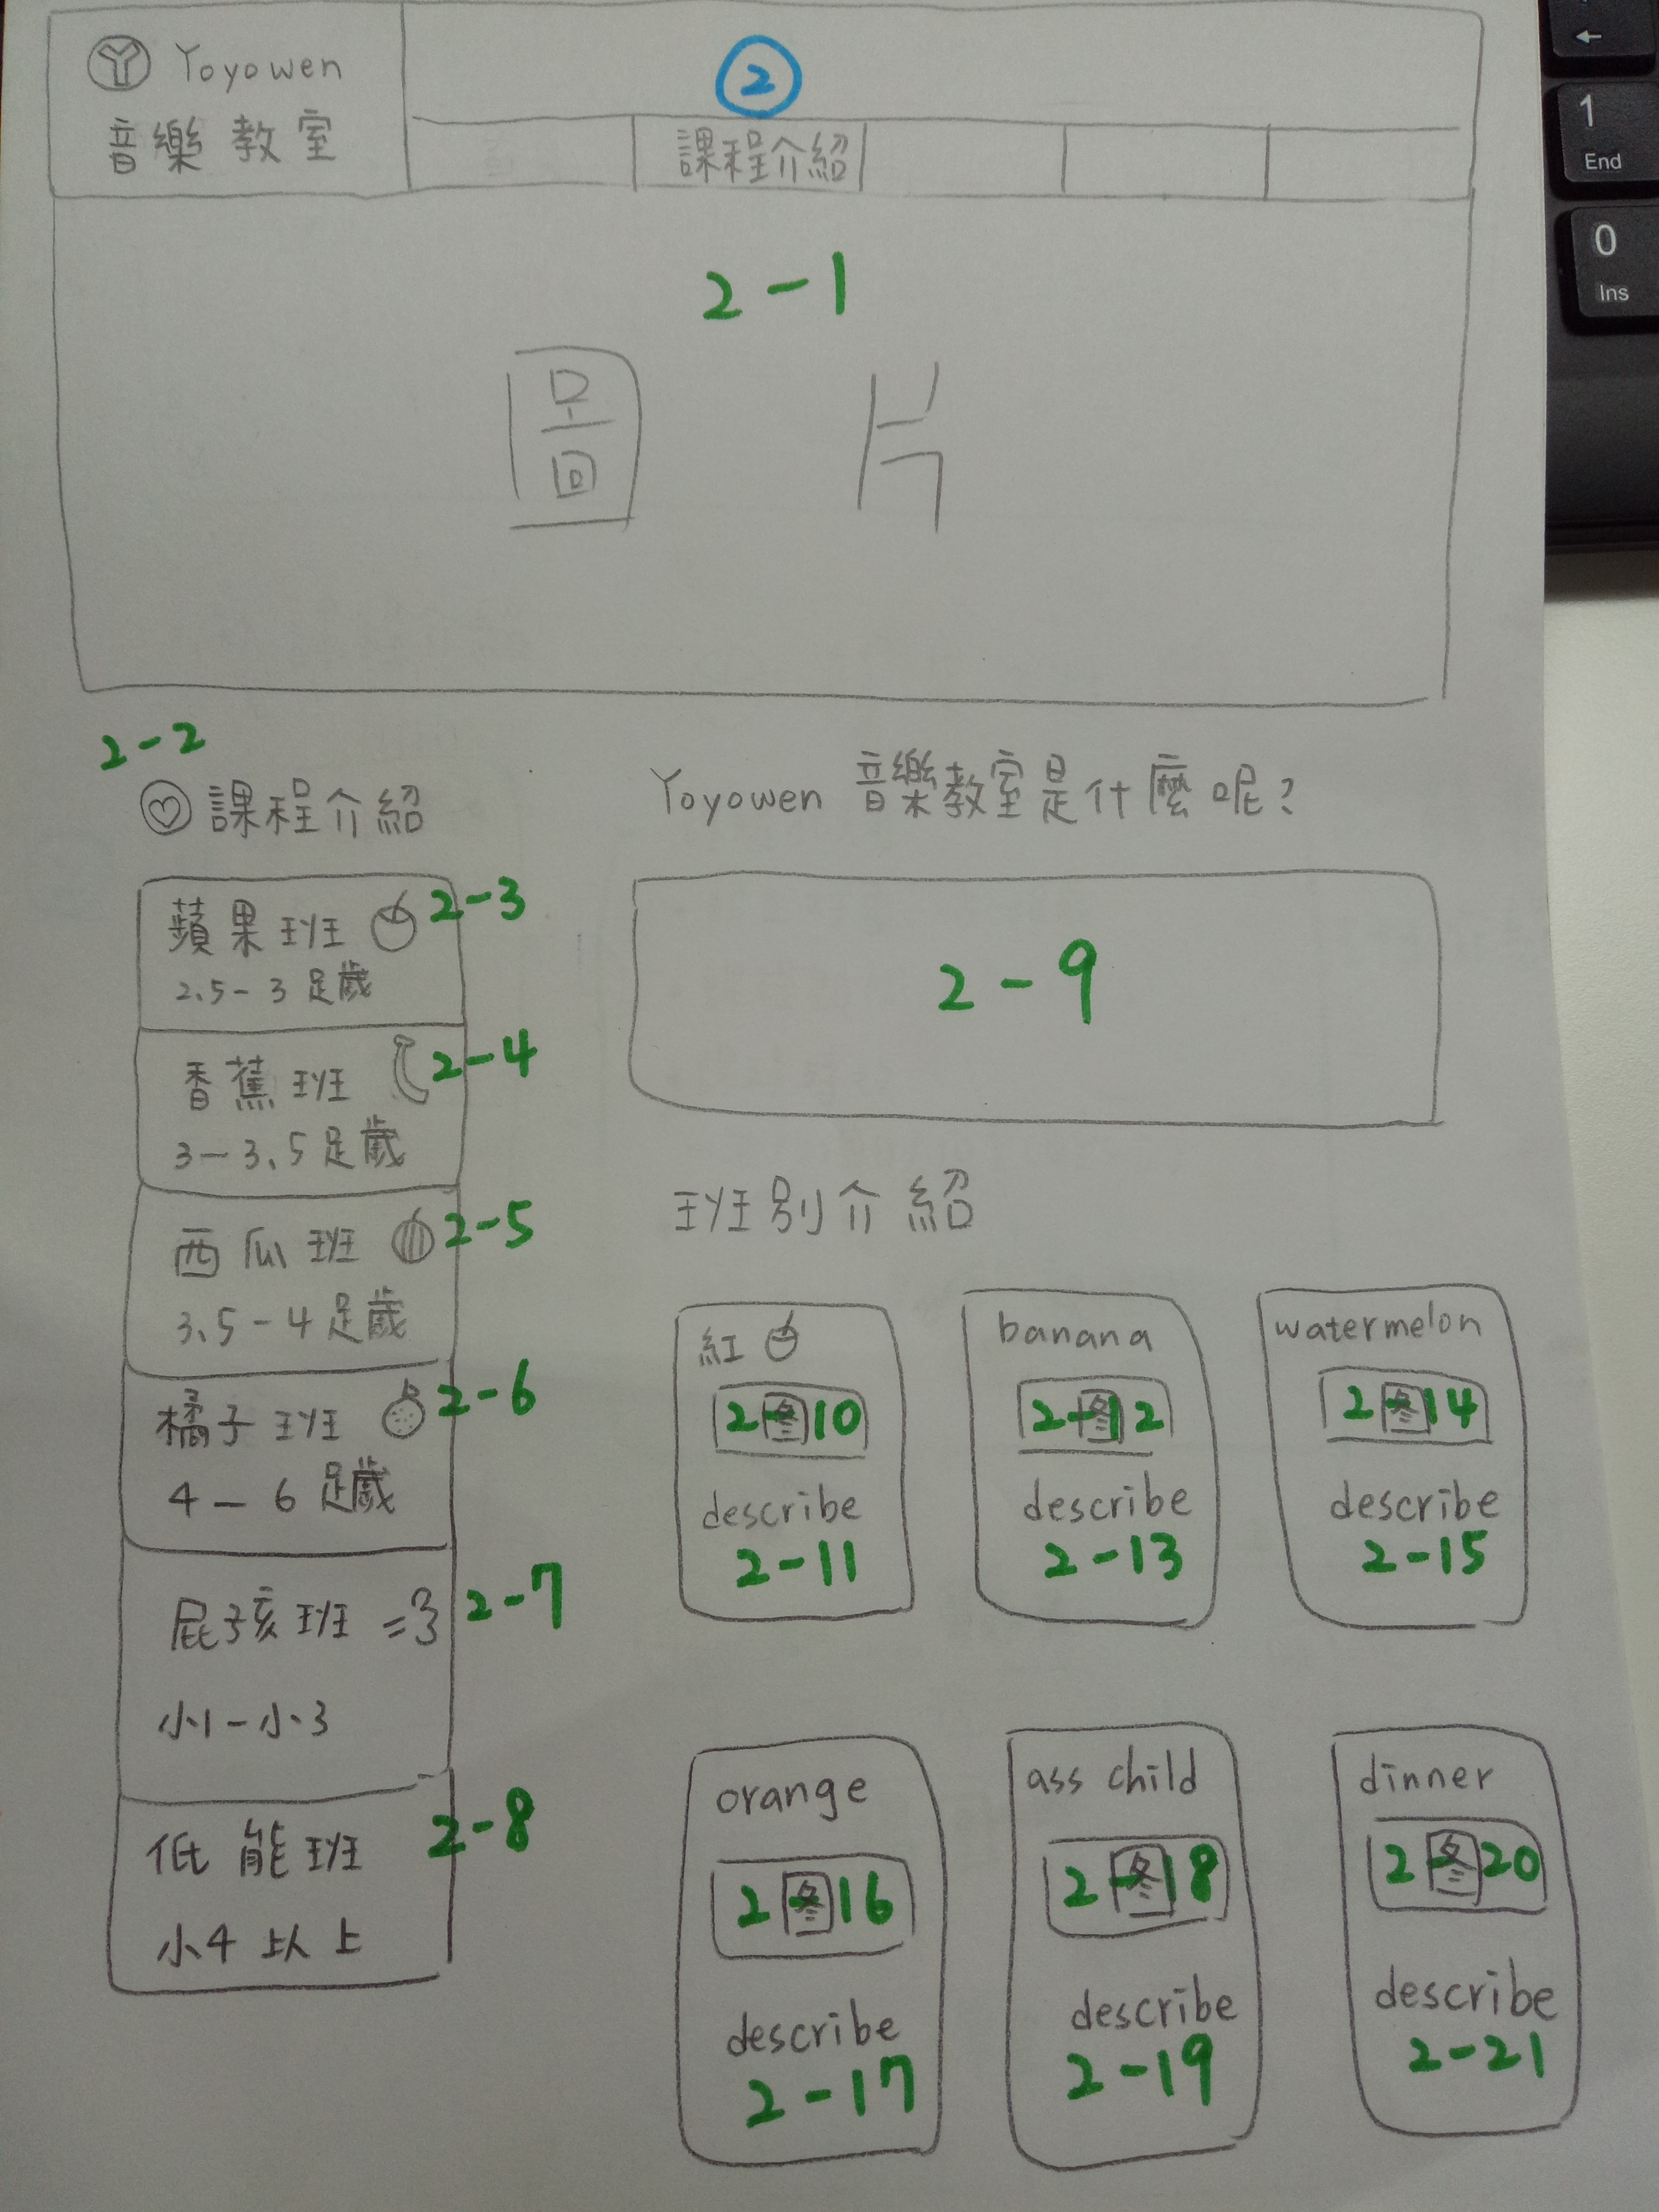 Ⓨ Yoyowen
音樂教室
②
課程介紹
2-1
圖片
2-2
課程介紹
蘋果班 2-3
2.5-3足歲
香蕉班 2-4
3-3.5足歲
西瓜班 2-5
3.5-4足歲
橘子班 2-6
4-6足歲
屁孩班 =3 2-7
小1-小3
低能班 2-8
小4以上
Yoyowen 音樂教室是什麼呢?
2-9
班別介紹
紅
2-10 图
describe
2-11
banana
2-12 图
describe
2-13
watermelon
2-14 图
describe
2-15
orange
2-16 图
describe
2-17
ass child
2-18 图
describe
2-19
dinner
2-20 图
describe
2-21
←
1
End
0
Ins